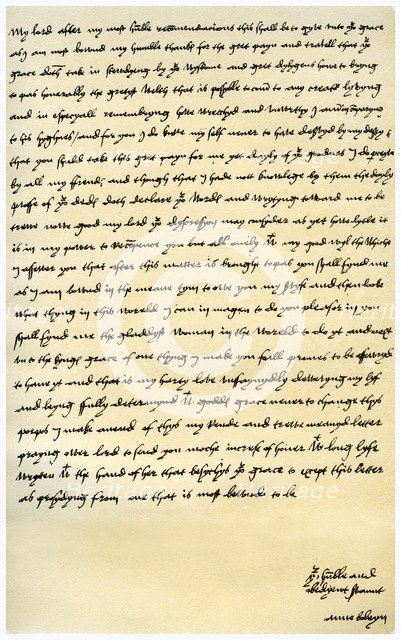 My lord after my most humble recomendacions this shall be to gyve unto yor grace
as I am most bownd my humble thanks for the gret payn and travell that yor
grace doth take in stewdyeng by yor wysdome and gret dylygens howe to bryng
to pas honerably the gretyst welth that is possyble to com to any creator lyvyng
and in especyall remembryng howe wrecchyd and unwrthy I am in comparyng
to his hyghnes / and for you I do knowe my self never to have deservyd by my deserts
that you shuld take this gret payn for me yet dayly of yor goodnes I do perceyve
by all my frends and though that I had not knowlege by them the dayly
proffe of yor deds doth declare yor words and wrytyng toward me to be
trewe nowe good my lord yor dyscresyon may consyder as yet howe lytle it
is in my power to recompence you but all onely wt my good wyl the whiche
I assewer you that after this matter is brought to pas you shall fynd me
as I am bownd in the meane tym to owe you my servyse and then looke
what thyng in this world I can immagen to do you pleasor in you
shall fynd me the gladdyst woman in the world to do yt and next
unto the kyngs grace of one thyng I make you full promes to be assewryd
to have yt and that is my harty love unfaynydly dewering my lyf
and beyng fully determynd wt goddes grace never to change thys
porpos I make a end of thys my reude and trewe meanyd letter
prayng ower lord to send you moche increse of honer wt long lyfe
wrytten wt the hand of her that besychys yor grace to except this letter
as prosydyng from one that is most bownde to be
yor humble and
obedyent servant
anne boleyn
Heritage